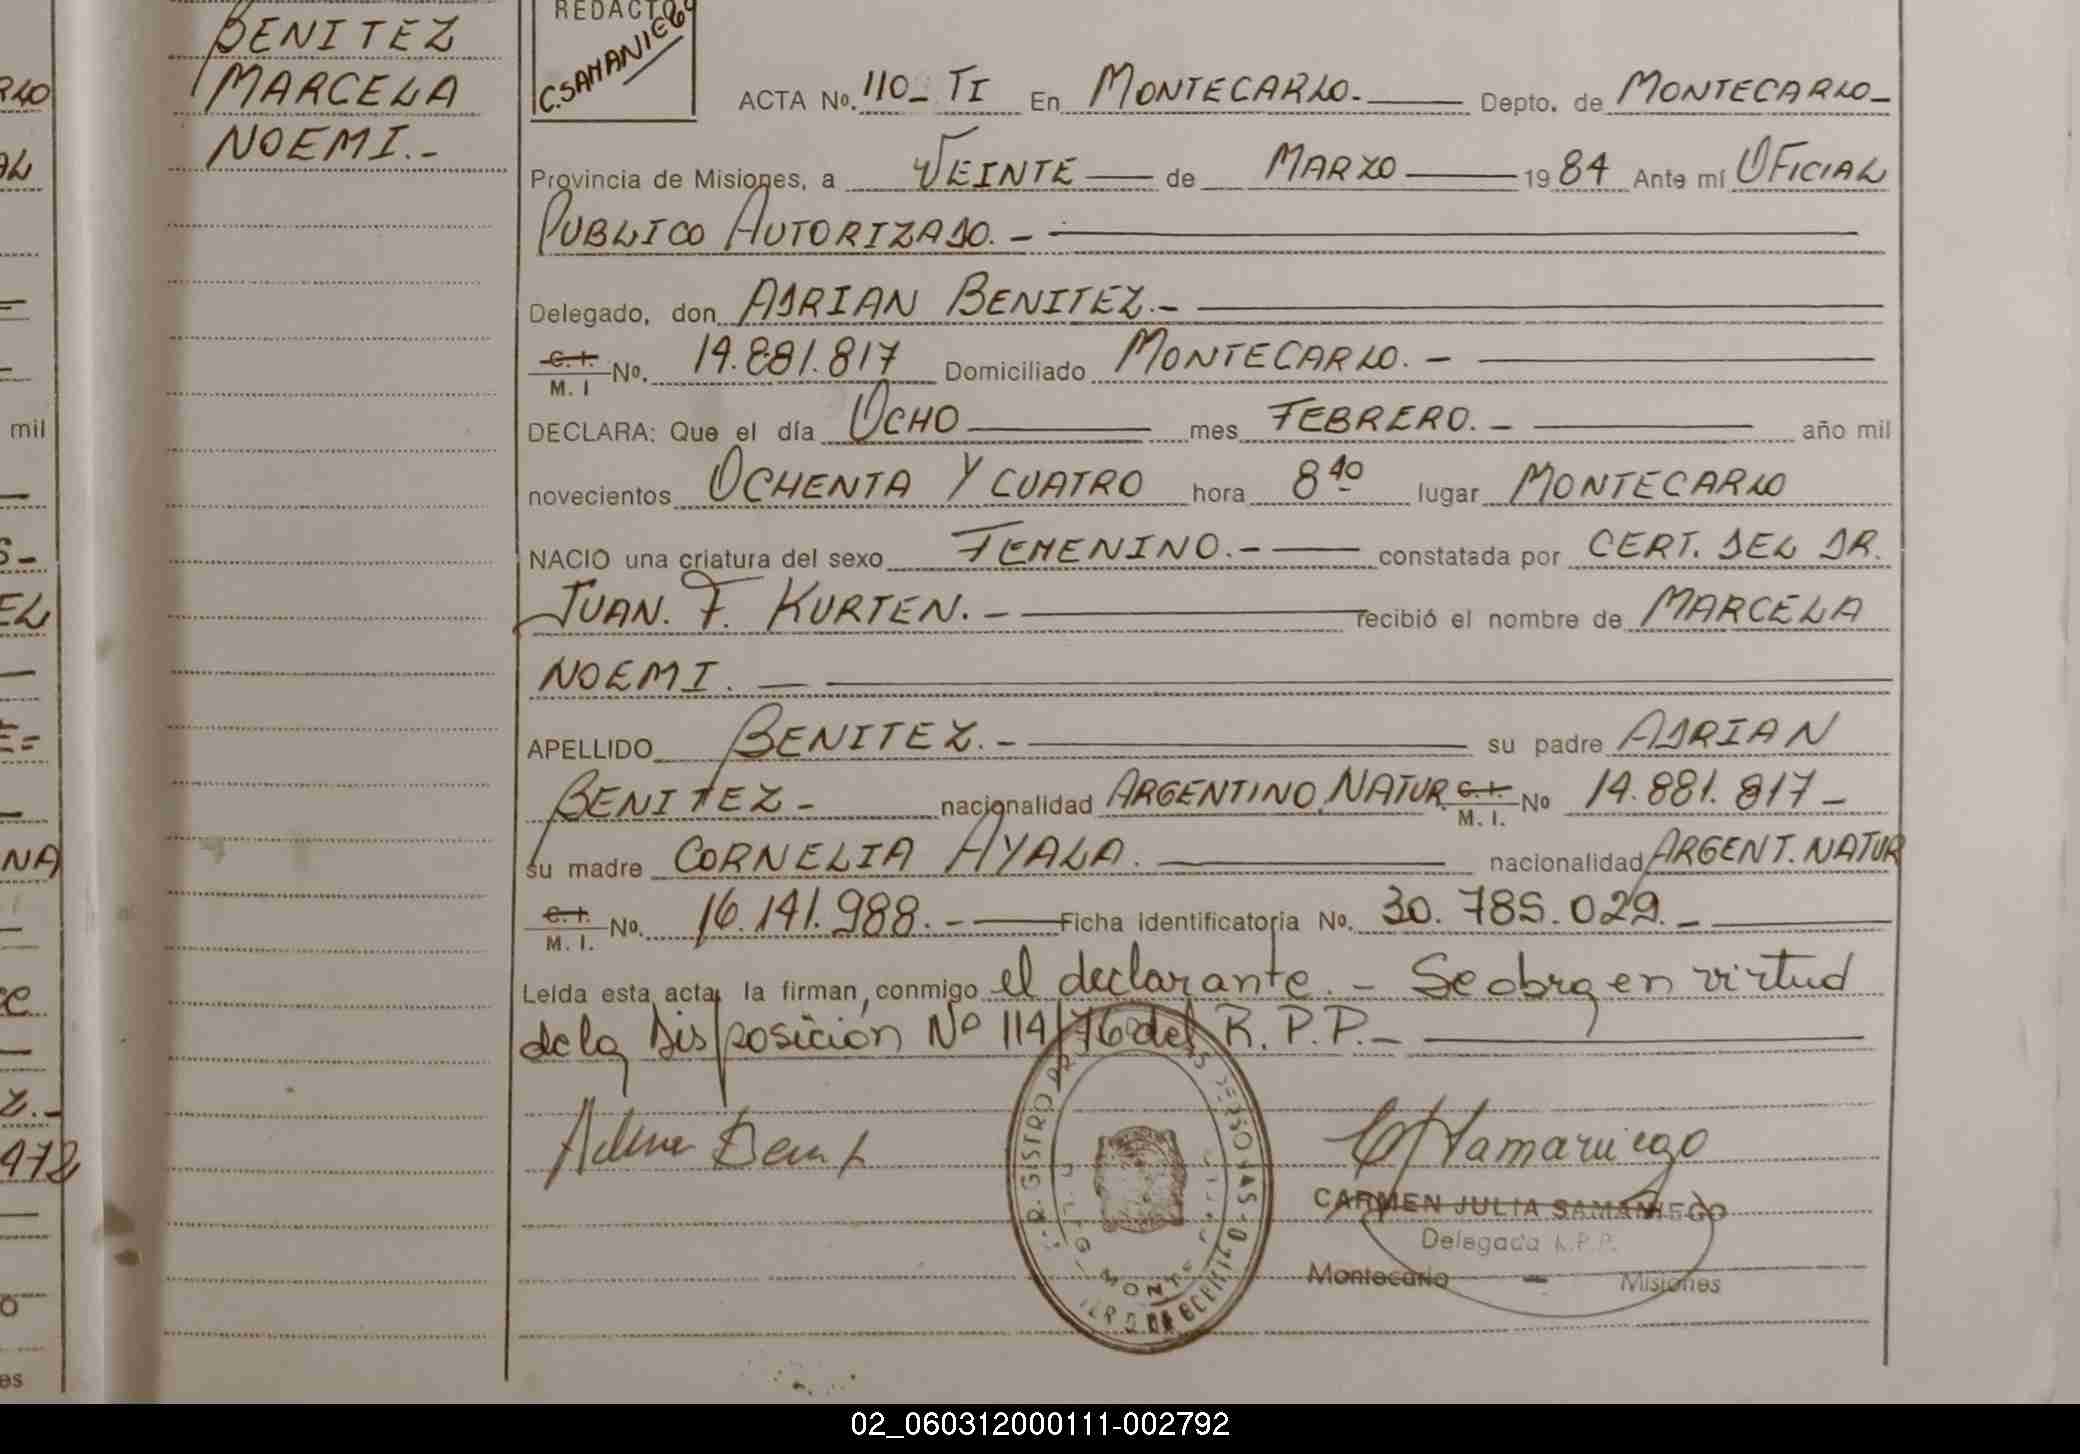 BENITEZ
MARCELA
NOEMI.-
REDACTO
C. SAMANIEGO
ACTA No. 110_ TI En MONTECARLO.- Depto. de MONTECARLO_
Provincia de Misiones, a VEINTE de MARZO 1984 Ante mí OFICIAL
PUBLICO AUTORIZADO. -
Delegado, don ADRIAN BENITEZ.-
C. I. M. I No. 14.881.817 Domiciliado MONTECARLO. -
DECLARA: Que el día OCHO mes FEBRERO. - año mil
novecientos OCHENTA Y CUATRO hora 8 40 lugar MONTECARLO
NACIO una criatura del sexo FEMENINO.- constatada por CERT. DEL DR.
JUAN. F. KURTEN. - recibió el nombre de MARCELA
NOEMI.
APELLIDO BENITEZ.- su padre ADRIAN
BENITEZ - nacionalidad ARGENTINO NATUR C. I. M. I. No 14.881.817 -
su madre CORNELIA AYALA. nacionalidad ARGENT. NATUR
C. I. M. I. No. 16.141.988. - Ficha identificatoria No. 30.785.029. -
Leída esta acta, la firman, conmigo el declarante. - Se obra en virtud
de la Disposición Nº 114/76 del R.P.P.-
CARMEN JULIA SAMANIEGO
Delegada R.P.P.
Montecarlo - Misiones
mil
02_060312000111-002792